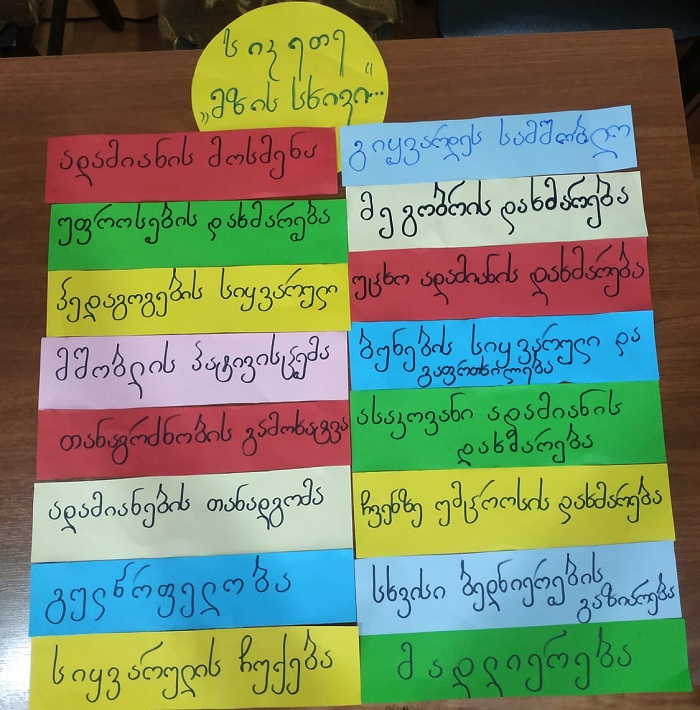 სიკეთე
„მზის სხივი..."
ადამიანის მოსმენა
უფროსების დახმარება
პედაგოგების სიყვარული
მშობლის პატივისცემა
თანაგრძნობის გამოხატვა
ადამიანების თანადგომა
გულწრფელობა
სიყვარულის ჩუქება
გიყვარდეს სამშობლო
მეგობრის დახმარება
უცხო ადამიანის დახმარება
ბუნების სიყვარული და
გაფრთხილება
ასაკოვანი ადამიანის
დახმარება
ჩვენზე უმცროსის დახმარება
სხვისი ბედნიერების
გაზიარება
მადლიერება